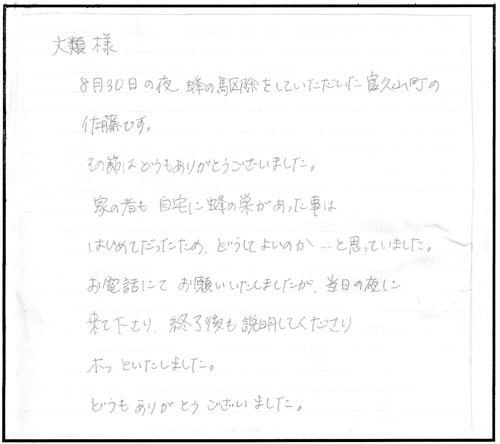 大類 様
8月30日の夜 蜂の駆除をしていただいた 富久山町の
佐藤です。
その節はどうもありがとうございました。
家の者も 自宅に蜂の巣があった事は
はじめてだったため、どうしてよいのか…と思っていました。
お電話にて お願いいたしましたが、当日の夜に
来て下さり、終了後も説明してくださり
ホッといたしました。
どうも ありがとう ございました。